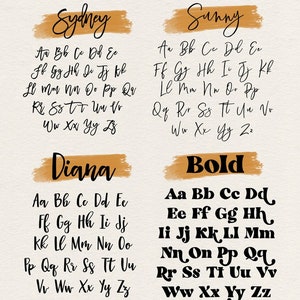 Sydney
Aa Bb Cc Dd Ee
Ff Gg Hh Ii Jj Kk
Ll Mm Nn Oo Pp Qq
Rr Ss Tt Uu Vv
Ww Xx Yy Zz
Sunny
Aa Bb Cc Dd Ee
Ff Gg Hh Ii Jj Kk
Ll Mm Nn Oo Pp
Qq Rr Ss Tt Uu Vv
Ww Xx Yy Zz
Diana
Aa Bb Cc Dd Ee
Ff Gg Hh Ii Jj
Kk Ll Mm Nn Oo
Pp Qq Rr Ss Tt Uu
Vv Ww Xx Yy Zz
Bold
Aa Bb Cc Dd
Ee Ff Gg Hh
Ii Jj Kk Ll Mm
Nn Oo Pp Qq
Rr Ss Tt Uu Vv
Ww Xx Yy Zz